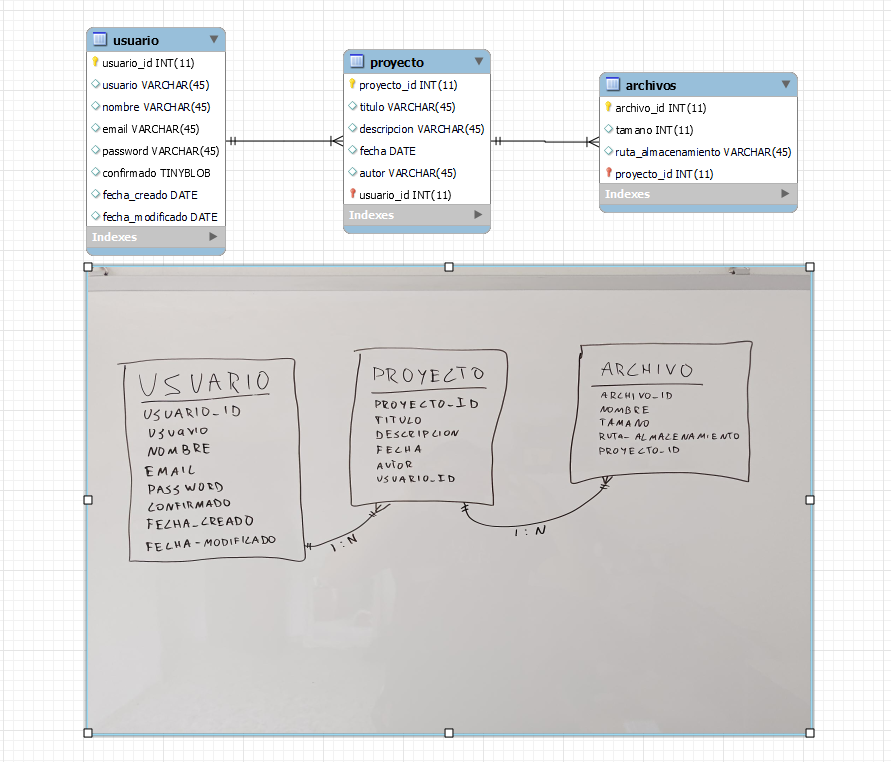 usuario
usuario_id INT(11)
usuario VARCHAR(45)
nombre VARCHAR(45)
email VARCHAR(45)
password VARCHAR(45)
confirmado TINYBLOB
fecha_creado DATE
fecha_modificado DATE
Indexes
proyecto
proyecto_id INT(11)
titulo VARCHAR(45)
descripcion VARCHAR(45)
fecha DATE
autor VARCHAR(45)
usuario_id INT(11)
Indexes
archivos
archivo_id INT(11)
tamano INT(11)
ruta_almacenamiento VARCHAR(45)
proyecto_id INT(11)
Indexes
USUARIO
USUARIO_ID
USUARIO
NOMBRE
EMAIL
PASSWORD
CONFIRMADO
FECHA_CREADO
FECHA-MODIFICADO
1:N
PROYECTO
PROYECTO_ID
TITULO
DESCRIPCION
FECHA
AUTOR
USUARIO_ID
1:N
ARCHIVO
ARCHIVO_ID
NOMBRE
TAMANO
RUTA_ALMACENAMIENTO
PROYECTO_ID